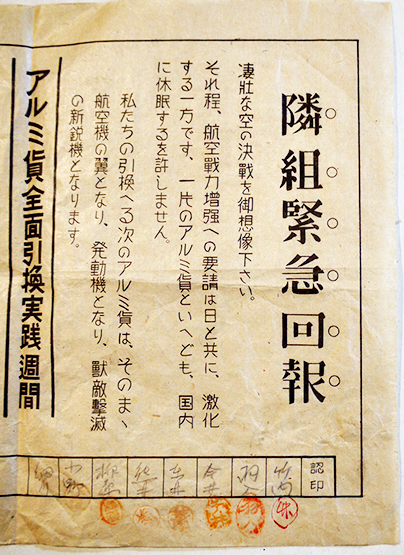 隣組緊急回報
凄壯な空の決戰を御想像下さい。
それ程、航空戰力増强への要請は日と共に、激化
する一方です、一片のアルミ貨といへども、国内
に休眠するを許しません。
私たちの引換へる次のアルミ貨は、そのまゝ
航空機の翼となり、発動機となり、獸敵擊滅
の新鋭機となります。
アルミ貨全面引換実践週間
認印
今井